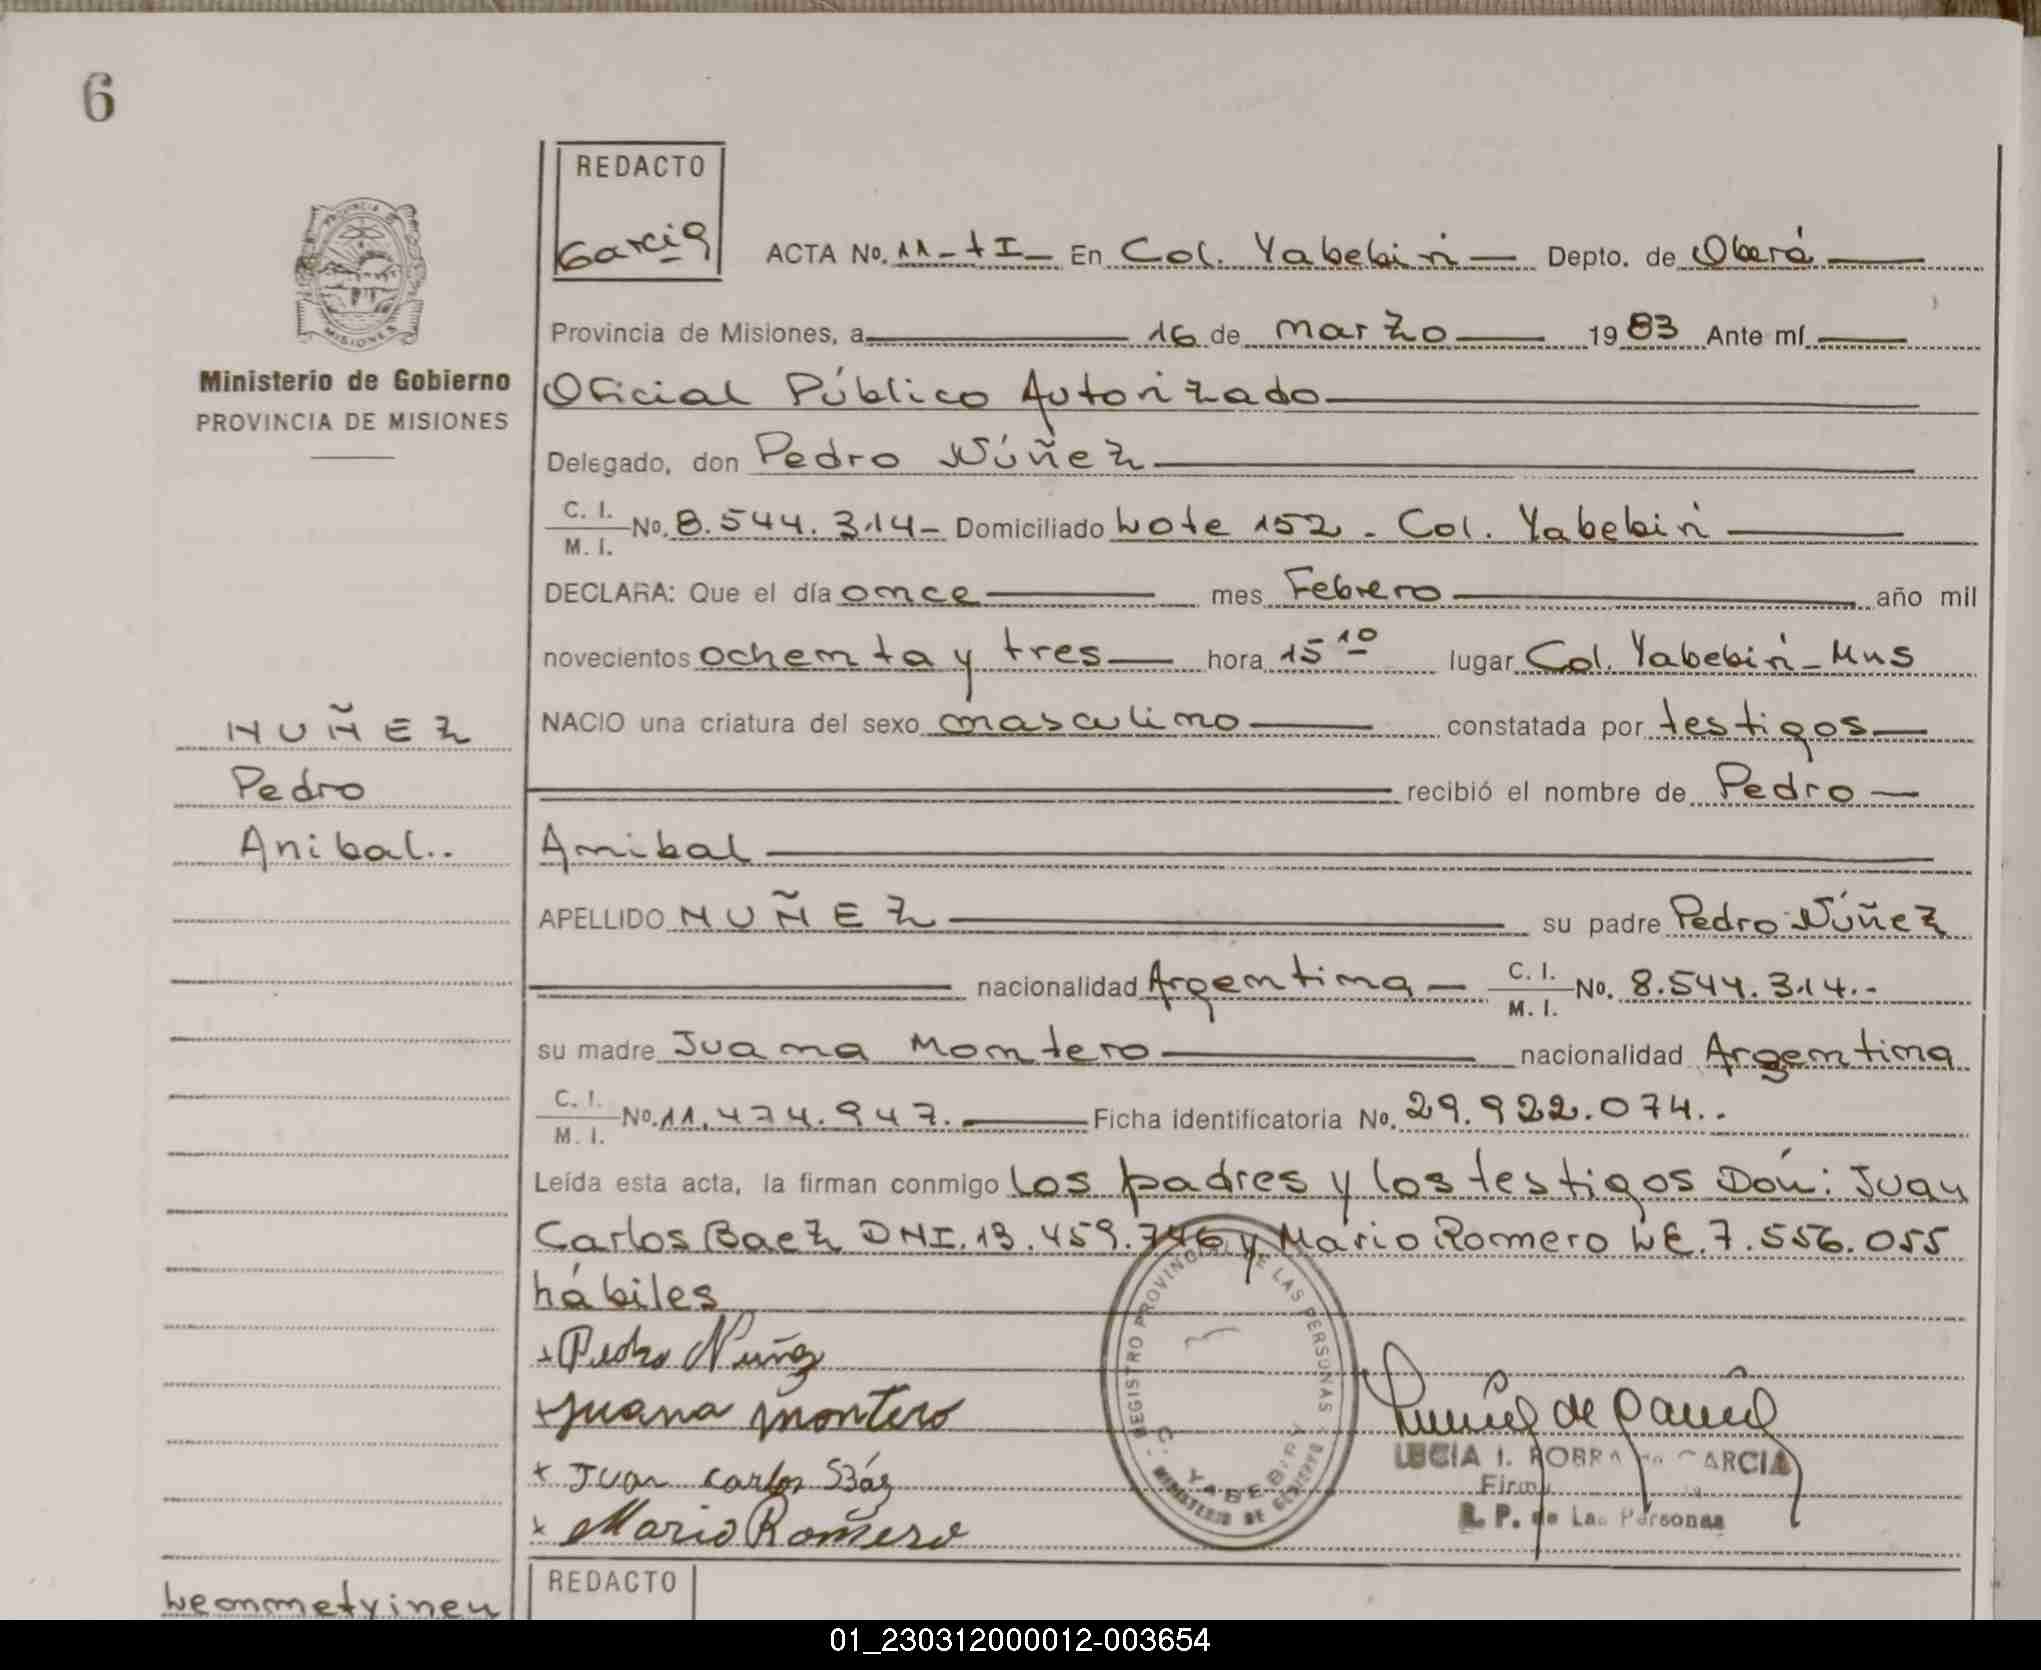 6
REDACTO
Garcia
ACTA No. 11-tI- En Col. Yabebiri Depto. de Oberá
Provincia de Misiones, a 16 de marzo 1983 Ante mí
Ministerio de Gobierno
PROVINCIA DE MISIONES
Oficial Público Autorizado
Delegado, don Pedro Núñez
C. I.
M. I. No. 8.544.314- Domiciliado Lote 152. Col. Yabebiri
DECLARA: Que el día once mes Febrero año mil
novecientos ochenta y tres hora 15 10 lugar Col. Yabebiri-Mns
NACIO una criatura del sexo masculino constatada por testigos
recibió el nombre de Pedro
Anibal
APELLIDO NUÑEZ su padre Pedro Núñez
nacionalidad Argentina C. I.
M. I. No. 8.544.314.-
su madre Juana Montero nacionalidad Argentina
C. I.
M. I. No. 11.474.947. Ficha identificatoria No. 29.922.074..
Leída esta acta, la firman conmigo los padres y los testigos Don: Juan
Carlos Baez DNI. 13.459.746 y Mario Romero LE. 7.556.055
hábiles
NUÑEZ
Pedro
Anibal..
+ Pedro Nuñez
+ Juana Montero
+ Juan Carlos Báez
+ Mario Romero
REGISTRO PROVINCIAL DE LAS PERSONAS
YABEBIRI
MINISTERIO DE GOBIERNO
LUCIA I. GARCIA
R. P. de Las Personas
REDACTO
01_230312000012-003654